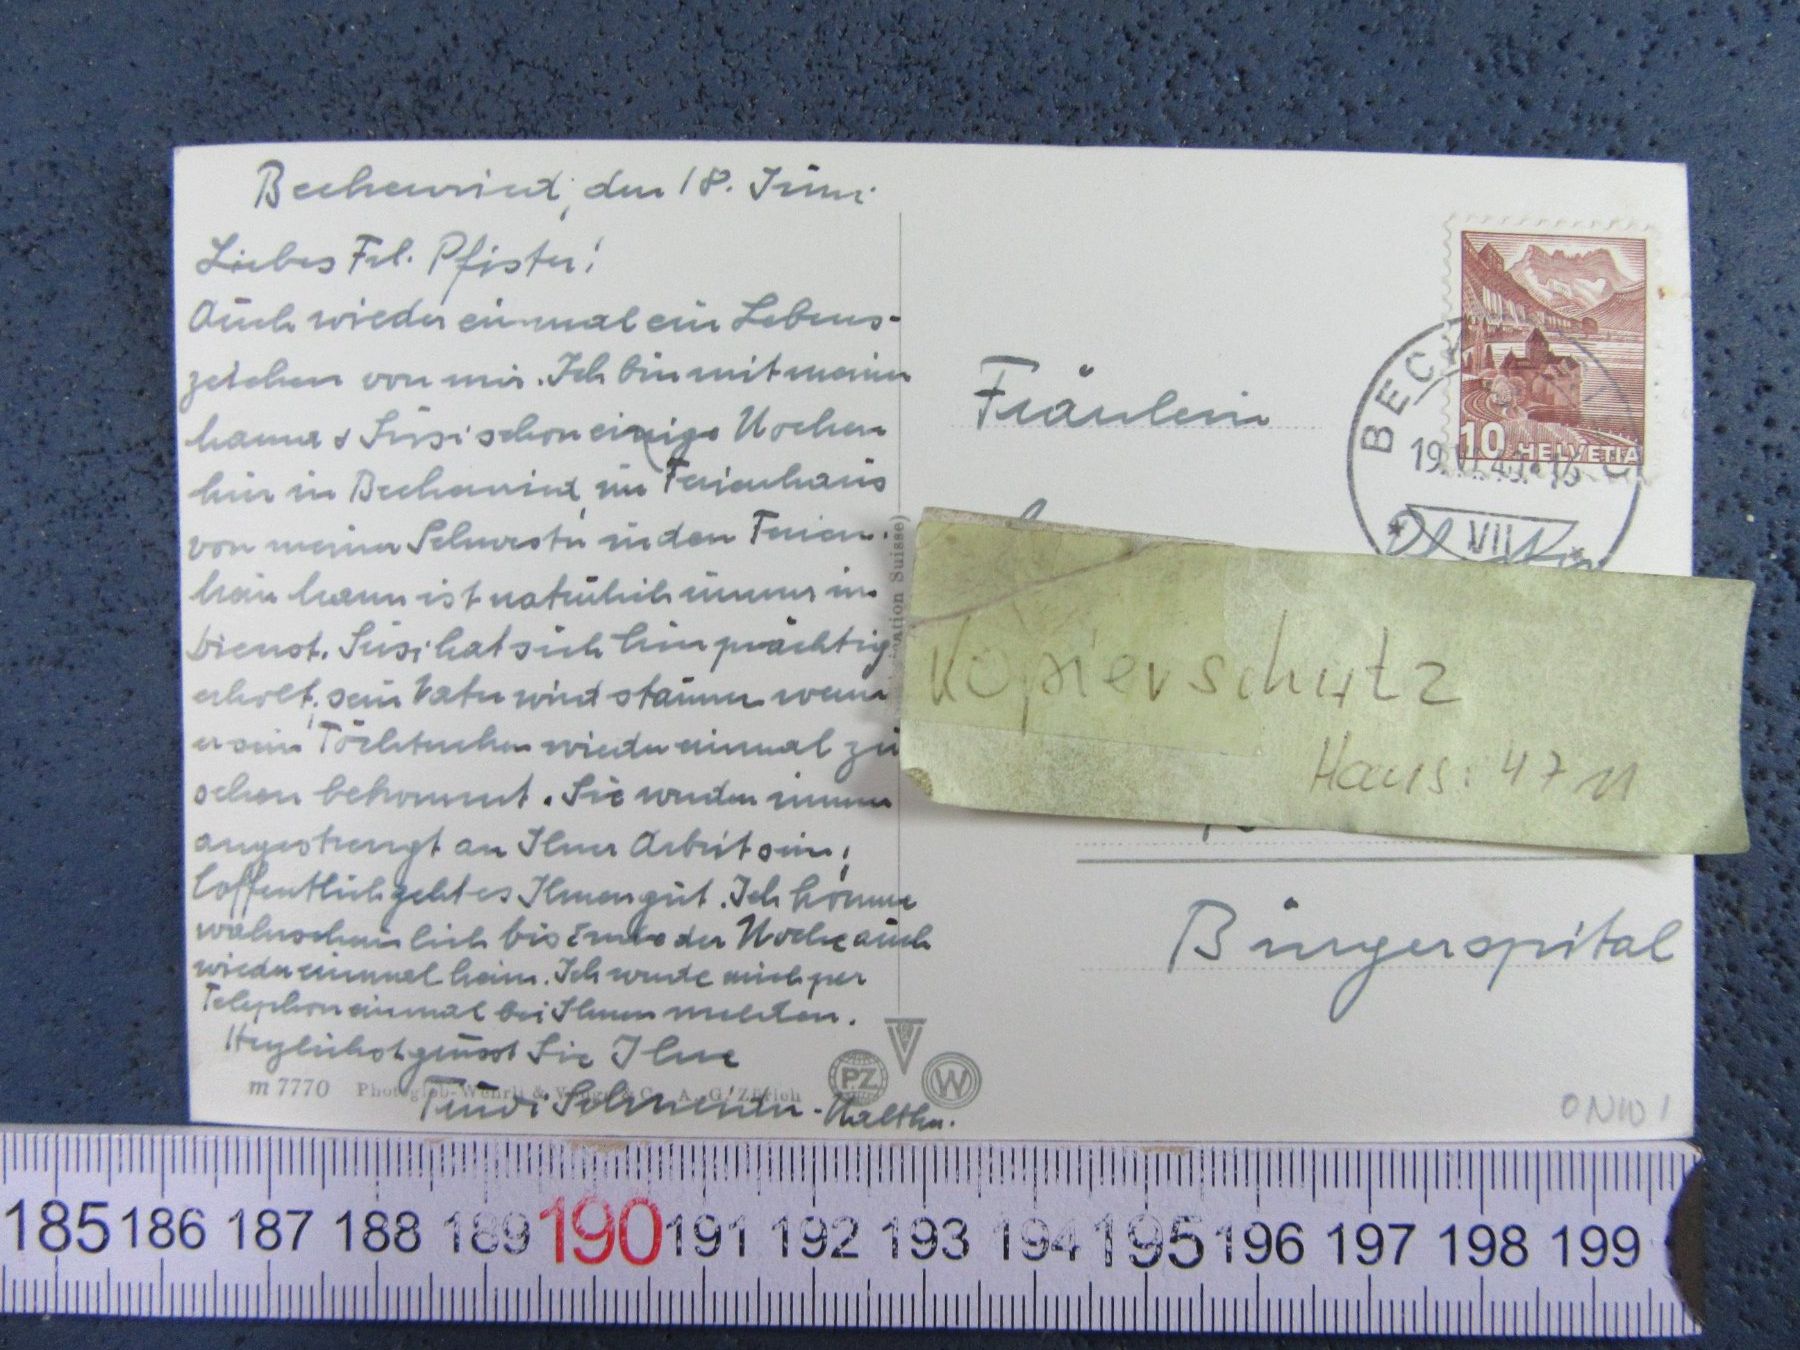 Beckenried, den 18. Juni
Liebes Frl. Pfister!
Auch wieder einmal ein Lebens-
zeichen von mir. Ich bin mit meiner
hanna & Susi schon einige Wochen
hier in Beckenried, im Ferienhaus
von meiner Schwester in den Ferien.
mann ist natürlich immer im
Dienst. Susi hat sich hier prächtig
erholt, sein Vater wird staunen wenn
er sein Töchterchen wieder einmal zu
sehen bekommt. Sie werden immer
angestrengt an Ihrer Arbeit sein,
hoffentlich geht es Ihnen gut. Ich komme
wahrscheinlich bis Ende der Woche auch
wieder einmal heim. Ich werde mich per
Telephon einmal bei Ihnen melden.
Herzlichst grüsst Sie Ihre
Trudi Schneider-Walther.
m 7770 Photoglob-Wehrli & Vouga & Co. A. G. Zürich
PZ
W
ation Suisse)
10 HELVETIA
BEC
19.VI.
VII
Fräulein
Kopierschutz
Haus: 47 11
Bürgerspital
ONW 1
185 186 187 188 189 190 191 192 193 194 195 196 197 198 199